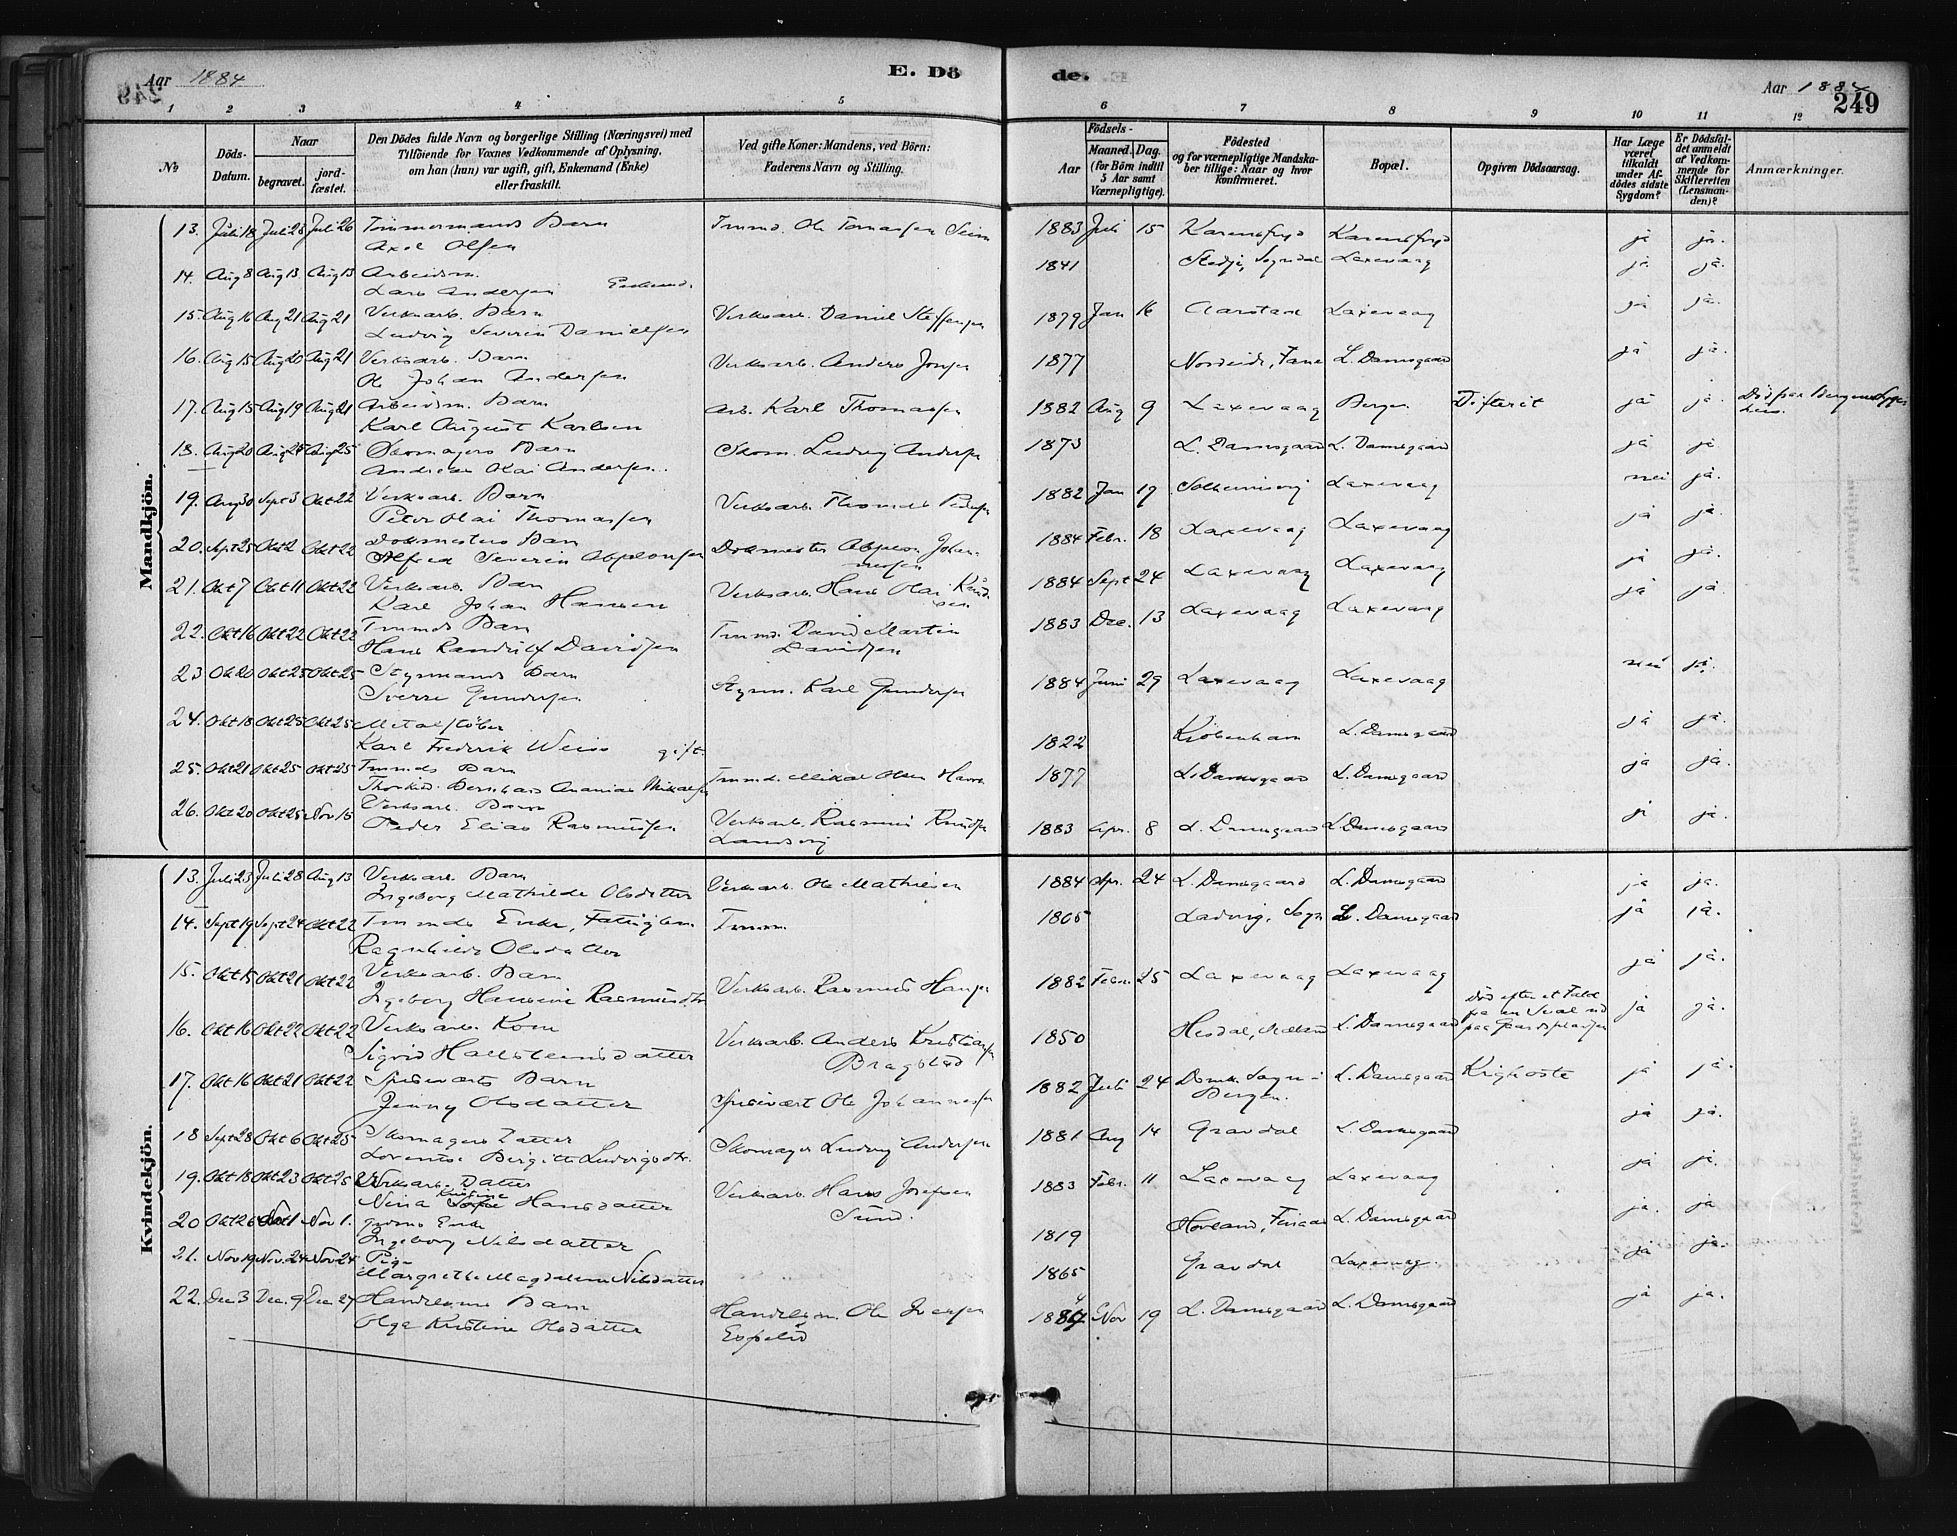 Aar 1884
E. Dö
de.
Aar 1884
249
1 2 3 4 5 6 7 8 9 10 11 12
No
Döds-Datum.
Naar
begravet.
jord-fæstet.
Den Dödes fulde Navn og borgerlige Stilling (Næringsvei) med
Tilföiende for Voxnes Vedkommende af Oplysning,
om han (hun) var ugift, gift, Enkemand (Enke)
eller fraskilt.
Ved gifte Koner: Mandens, ved Börn:
Faderens Navn og Stilling.
Födsels-
Aar
Maaned. Dag.
(for Börn indtil
5 Aar samt
Værnepligtige).
Födested
og for værnepligtige Mandska-
ber tillige: Naar og hvor
Konfirmeret.
Bopæl.
Opgiven Dödsaarsag.
Har Læge
været
tilkaldt
under Af-
dödes sidste
Sygdom?
Er Dödsfal-
det anmeldt
af Vedkom-
mende for
Skifteretten
(Lensman-
den)?
Anmærkninger.
Mandkjön.
13. Juli 18 Juli 23 Juli 26 Tömmermands Barn Tmmd. Ole Tomassen Seim 1883 Juli 15 Karensfryd Karensfryd ja ja.
Axel Olsen
14. Aug 8 Aug 13 Aug 13 Arbeidsm. 1841 Sogndal Laxevaag ja ja.
Lars Andersen
15. Aug 16 Aug 21 Aug 21 Verksarb. Barn Verksarb. Daniel Steffensen 1879 Jan 16 Aarstad Laxevaag ja ja.
Ludvig Severin Danielsen
16. Aug 15 Aug 20 Aug 21 Verksarb. Barn Verksarb. Anders 1877 Fane L. Damsgaard ja ja.
Ole Johan Andersen
17. Aug 15 Aug 19 Aug 21 Arbeidsm. Barn Arb. Karl Thomassen 1882 Aug 9 Laxevaag Bergen Difterit ja ja. Död paa Bergens Syge-
hus.
Karl August Karlsen
18. Aug 20 Aug 24 Aug 25 Skomagers Barn Skom. Ludvig Andersen 1873 L. Damsgaard L. Damsgaard ja ja
Andreas Kai Andersen.
19. Aug 30 Sept 3 Okt 22 Verksarb. Barn Verksarb. Thomas Pedersen 1882 Jan 17 Solheimsvig Laxevaag nei ja.
Peter Olai Thomassen
20. Sept 25 Okt 2 Okt 22 Dokmesters Barn Dokmester Absalon Johan-
nesen 1884 Febr. 18 Laxevaag Laxevaag ja ja.
Alfred Severin Absalonsen
21. Okt 7 Okt 11 Okt 22 Verksarb. Barn Verksarb. Hans Olai Knud-
sen 1884 Sept 24 Laxevaag Laxevaag ja ja.
Karl Johan Hansen
22. Okt 16 Okt 22 Okt 22 Tmmds Barn Tmmd. David Martin
Davidsen 1883 Dec. 13 Laxevaag Laxevaag ja ja.
Hans Randulf Davidsen
23 Okt 20 Okt 25 Okt 25 Styrmands Barn Styrm. Karl Gundersen 1884 Juni 29 Laxevaag Laxevaag nei ja.
Sverre Gundersen
24. Okt 18 Okt 25 Okt 25 Metalstøber 1822 Kiöbenhavn L. Damsgaard ja ja.
Karl Frederik Weiss gift.
25. Okt 21 Okt 25 Okt 25 Tmmds Barn Tmmd. Mikal Olsen 1877 L. Damsgaard L. Damsgaard ja ja.
Bernhard Ananias Mikalsen
26. Okt 20 Okt 25 Nov 15 Verksarb. Barn Verksarb. Rasmus Knudsen
Landsvig 1883 Apr. 8 L. Damsgaard L. Damsgaard ja ja.
Peder Elias Rasmussen
Kvindekjön.
13. Juli 23 Juli 28 Aug 13 Verksarb. Barn Verksarb. Ole Mathiesen 1884 Apr. 24 L. Damsgaard L. Damsgaard ja ja.
Ingeborg Mathilde Olsdatter
14. Sept 19 Sept 24 Okt 22 Tmmds Enke, Fattiglem Tmmm. 1805 Ladvig, Sogn L. Damsgaard ja ja.
Ragnhilde Olsdatter
15. Okt 15 Okt 21 Okt 22 Verksarb. Barn Verksarb. Rasmus Hansen 1882 Febr. 25 Laxevaag Laxevaag ja ja.
Ingeborg Hansine Rasmusdtr
16. Okt 16 Okt 22 Okt 22 Verksarb. Kone Verksarb. Anders Kristiansen
Bragstad 1850 L. Damsgaard Död efter et Fald
fra en Sval ned
paa Gaardspladsen ja ja.
Sigrid Hallsteinsdatter
17. Okt 16 Okt 21 Okt 22 Spiseværts Barn Spisevært Ole Johannesen 1882 Juli 24 Domk. Sogn i
Bergen. L. Damsgaard Kighoste ja ja.
Jenny Olsdatter
18 Sept 28 Okt 6 Okt 25 Skomagers Datter Skomager Ludvig Andersen 1881 Aug 14 Gravdal L. Damsgaard ja ja.
Lorentse Birgitte Ludvigsdtr.
19. Okt 18 Okt 23 Okt 25 Verksarb. Datter Verksarb. Hans Josefsen
Sund. 1883 Febr. 11 Laxevaag Laxevaag ja ja.
Nina Kristine Hansdatter
20 Okt 26 Nov 1 Nov 1. Enke 1819 Hovland, L. Damsgaard ja. ja
Ingeborg Nilsdatter
21. Nov 19 Nov. 24 Nov 24 Pige 1865 Gravdal Laxevaag. ja ja.
Margrethe Magdalene Nilsdatter
22. Dec 3 Dec. 9 Dec 27 Handelsms Barn Handelsm. Ole Iversen
Espelid 1884 Nov 19 L. Damsgaard L. Damsgaard ja ja.
Olga Kristine Olsdatter